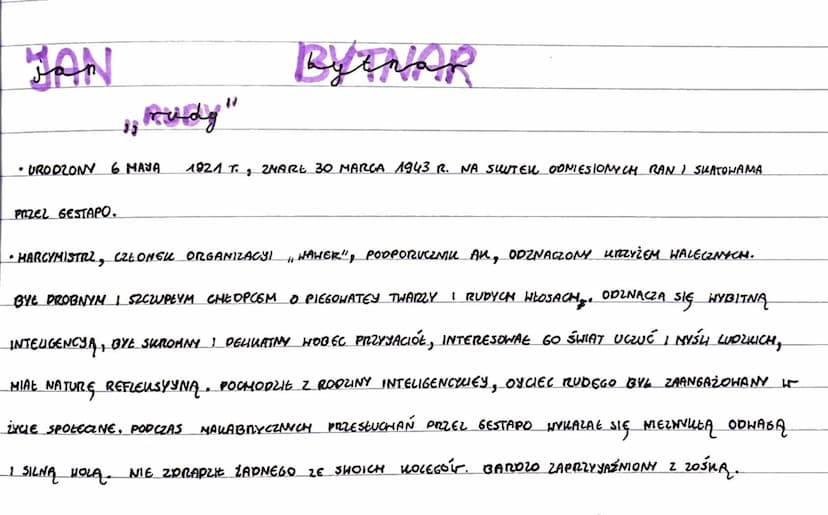 JAN BYTNAR
jan bytnar
„RUDY"
rudy
• URODZONY 6 MAJA 1921 r., ZMARŁ 30 MARCA 1943 R. NA SKUTEK ODNIESIONYCH RAN I SKATOWANIA
PRZEZ GESTAPO.
• HARCMISTRZ, CZŁONEK ORGANIZACJI „WAWER", PODPORUCZNIK AK, ODZNACZONY KRZYŻEM WALECZNYCH.
BYŁ DROBNYM I SZCZUPŁYM CHŁOPCEM O PIEGOWATEJ TWARZY I RUDYCH WŁOSACH. ODZNACZA SIĘ WYBITNĄ
INTELIGENCJĄ, BYŁ SKROMNY I DELIKATNY WOBEC PRZYJACIÓŁ, INTERESOWAŁ GO ŚWIAT UCZUĆ I MYŚLI LUDZKICH,
MIAŁ NATURĘ REFLEKSYJNĄ. POCHODZIŁ Z RODZINY INTELIGENCKIEJ, OJCIEC RUDEGO BYŁ ZAANGAŻOWANY W
ŻYCIE SPOŁECZNE. PODCZAS MAKABRYCZNYCH PRZESŁUCHAŃ PRZEZ GESTAPO WYKAZAŁ SIĘ NIEZWYKŁĄ ODWAGĄ
I SILNĄ WOLĄ. NIE ZDRADZIŁ ŻADNEGO ZE SWOICH KOLEGÓW. BARDZO ZAPRZYJAŹNIONY Z ZOŚKĄ.